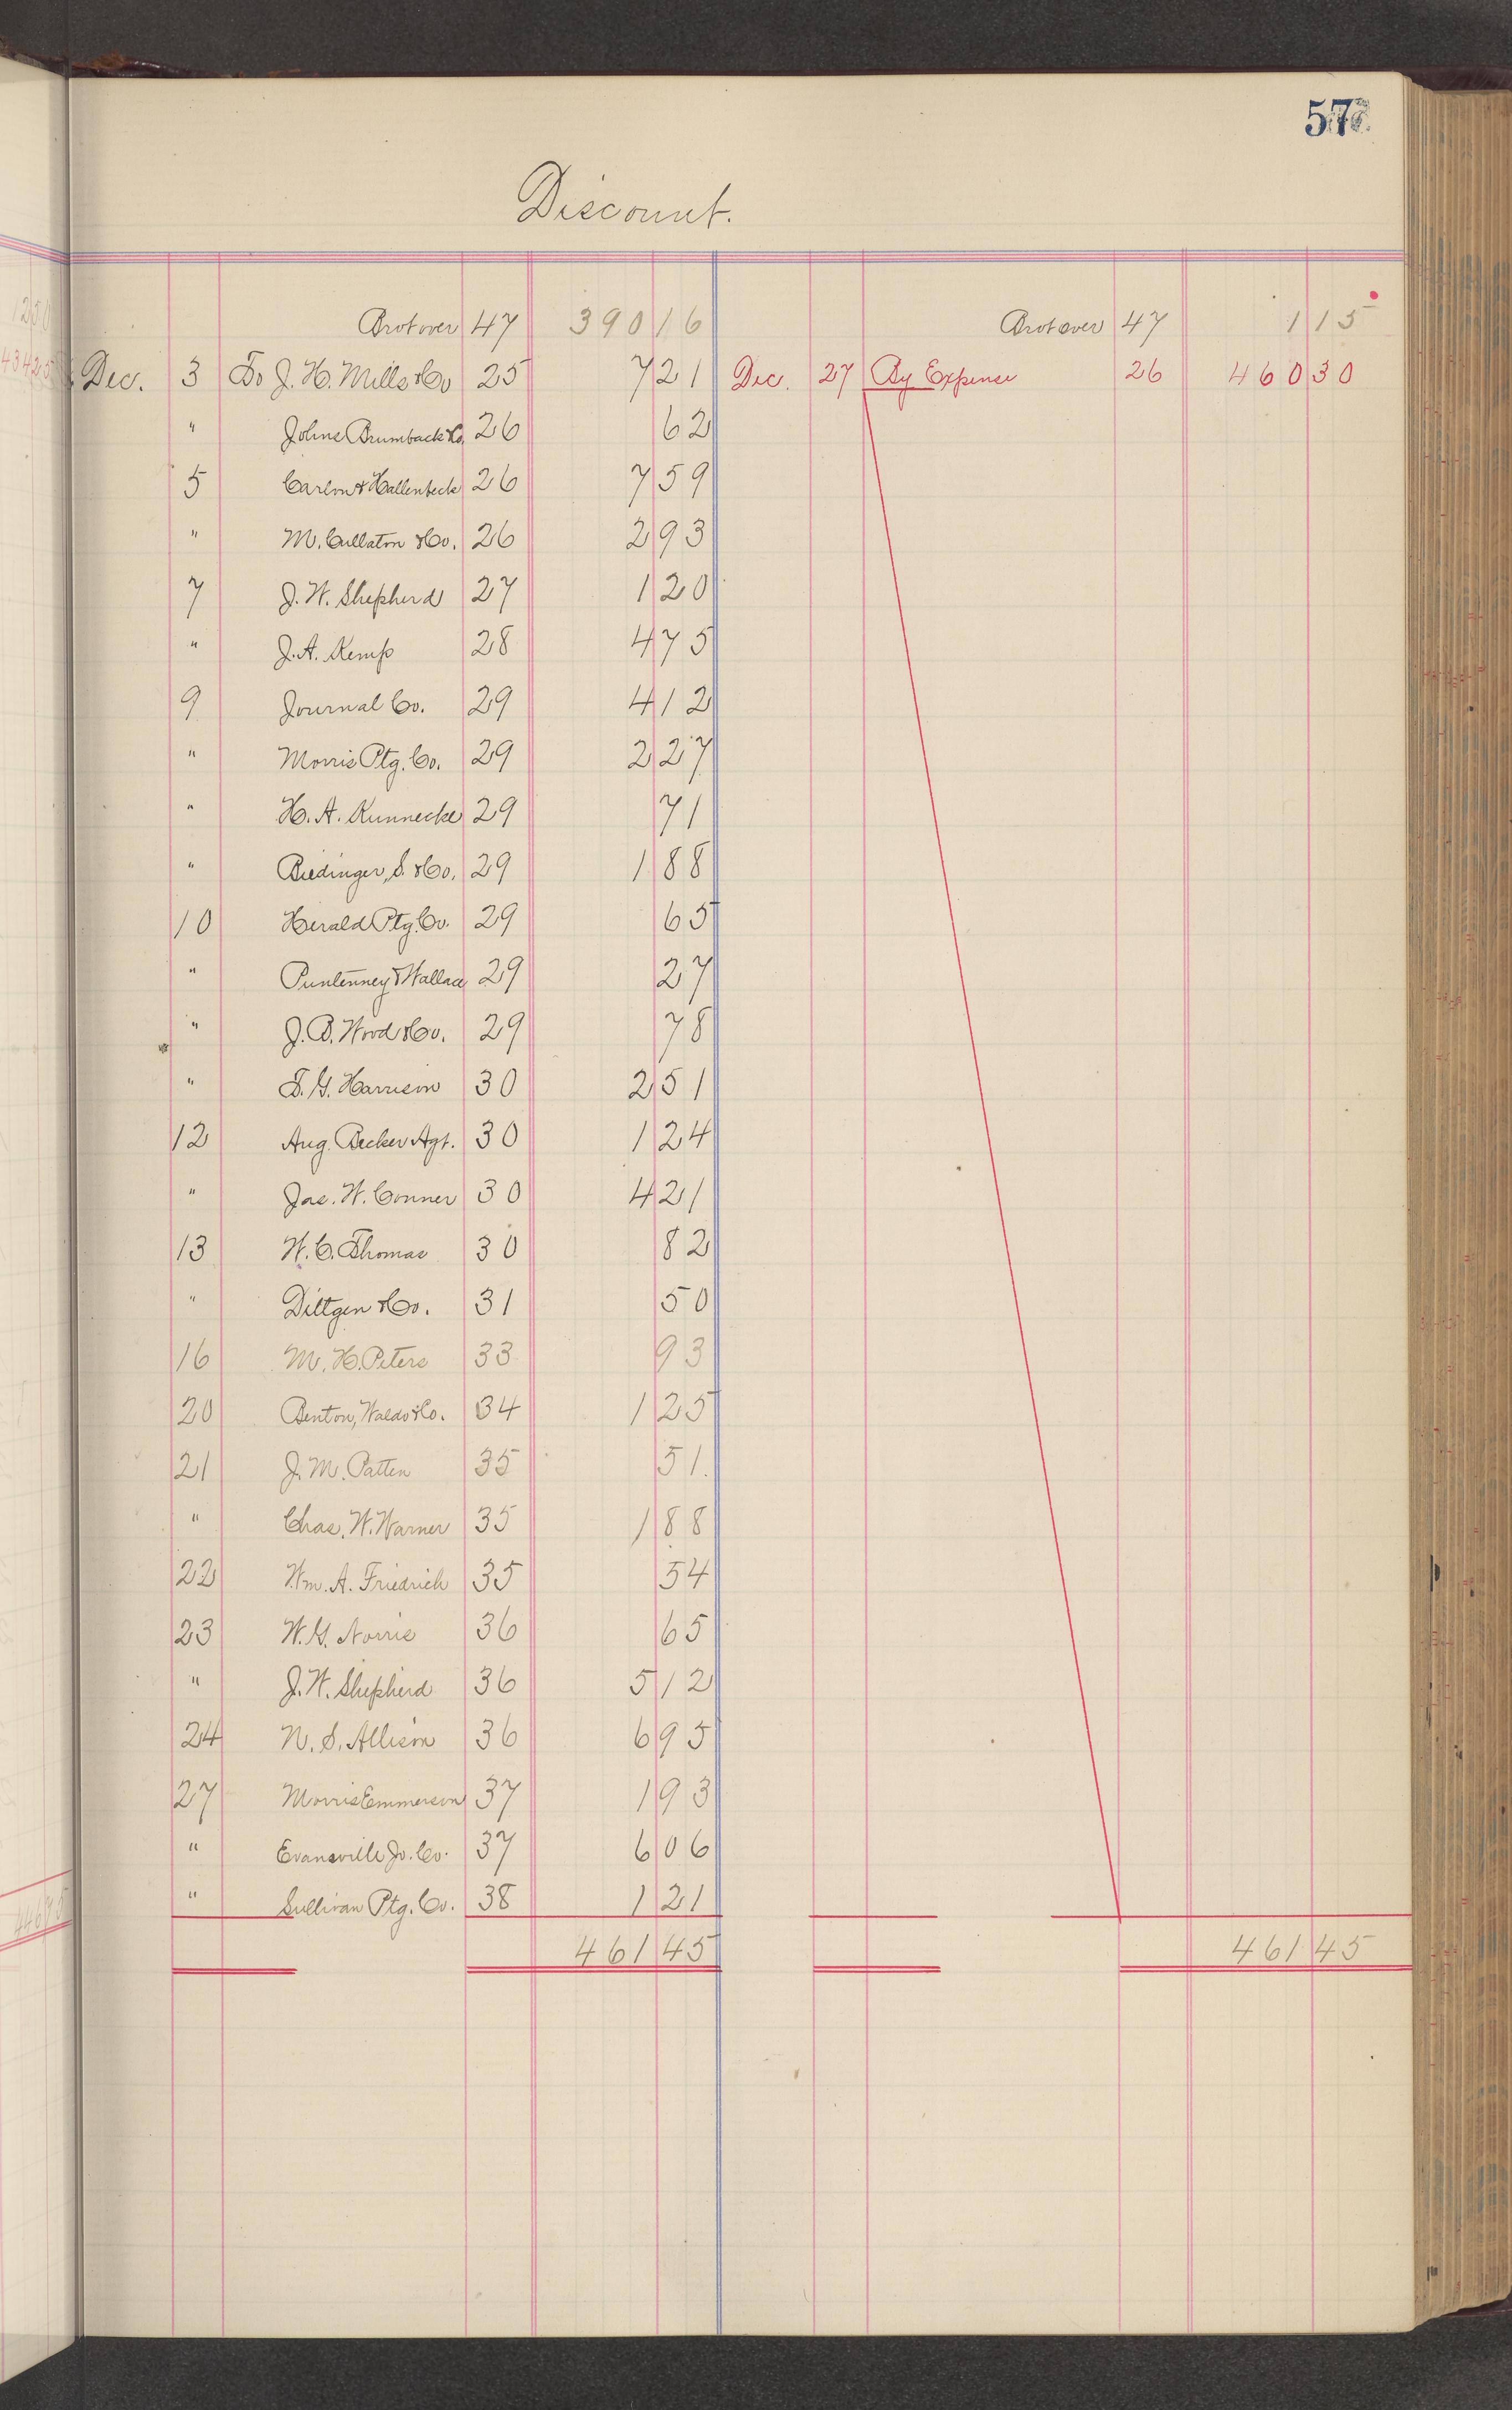 57
Discount.
Brot over 47 390 16 Brot over 47 1 15
Dec. 3 To J. H. Mills & Co 25 7 21 Dec. 27 By Expense 26 460 30
" Johns Brumback & Co. 26 62
5 Carlon & Hallenbeck 26 7 59
" M. Cullaton & Co. 26 2 93
7 J. W. Shepherd 27 1 20
" J. A. Kemp 28 4 75
9 Journal Co. 29 4 12
" Morris Ptg. Co. 29 2 27
" H. A. Kunnecke 29 71
" Biedinger, S. & Co. 29 1 88
10 Herald Ptg. Co. 29 65
" Puntenney & Wallace 29 27
" J. B. Wood & Co. 29 78
" T. G. Harrison 30 2 51
12 Aug. Becker Agt. 30 1 24
" Jas. W. Conner 30 4 21
13 W. C. Thomas 30 82
" Dittgen & Co. 31 50
16 M. H. Peters 33 93
20 Benton, Waldo & Co. 34 1 25
21 J. M. Patten 35 51
" Chas. W. Warner 35 1 88
22 Wm. A. Friedrich 35 54
23 W. G. Norris 36 65
" J. W. Shepherd 36 5 12
24 N. S. Allison 36 6 95
27 Morris Emmerson 37 1 93
" Evansville Jo. Co. 37 6 06
" Sullivan Ptg. Co. 38 1 21
461 45 461 45